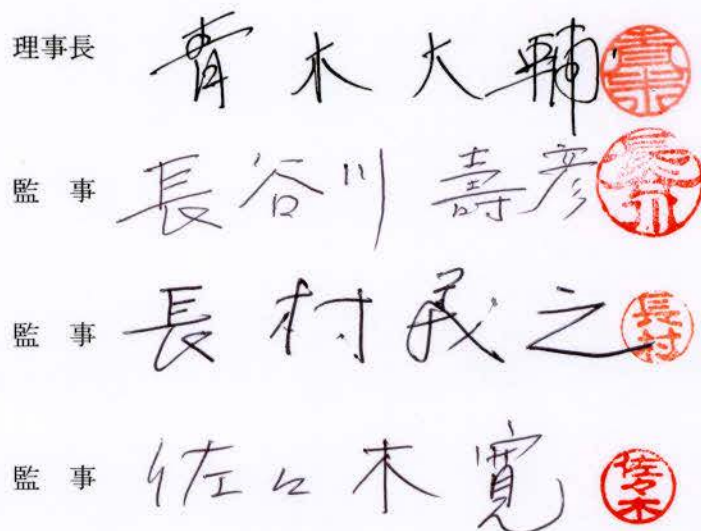 理事長 青木大輔 青木
監事 長谷川壽彦 長谷川
監事 長村義之 長村
監事 佐々木寛 佐々木